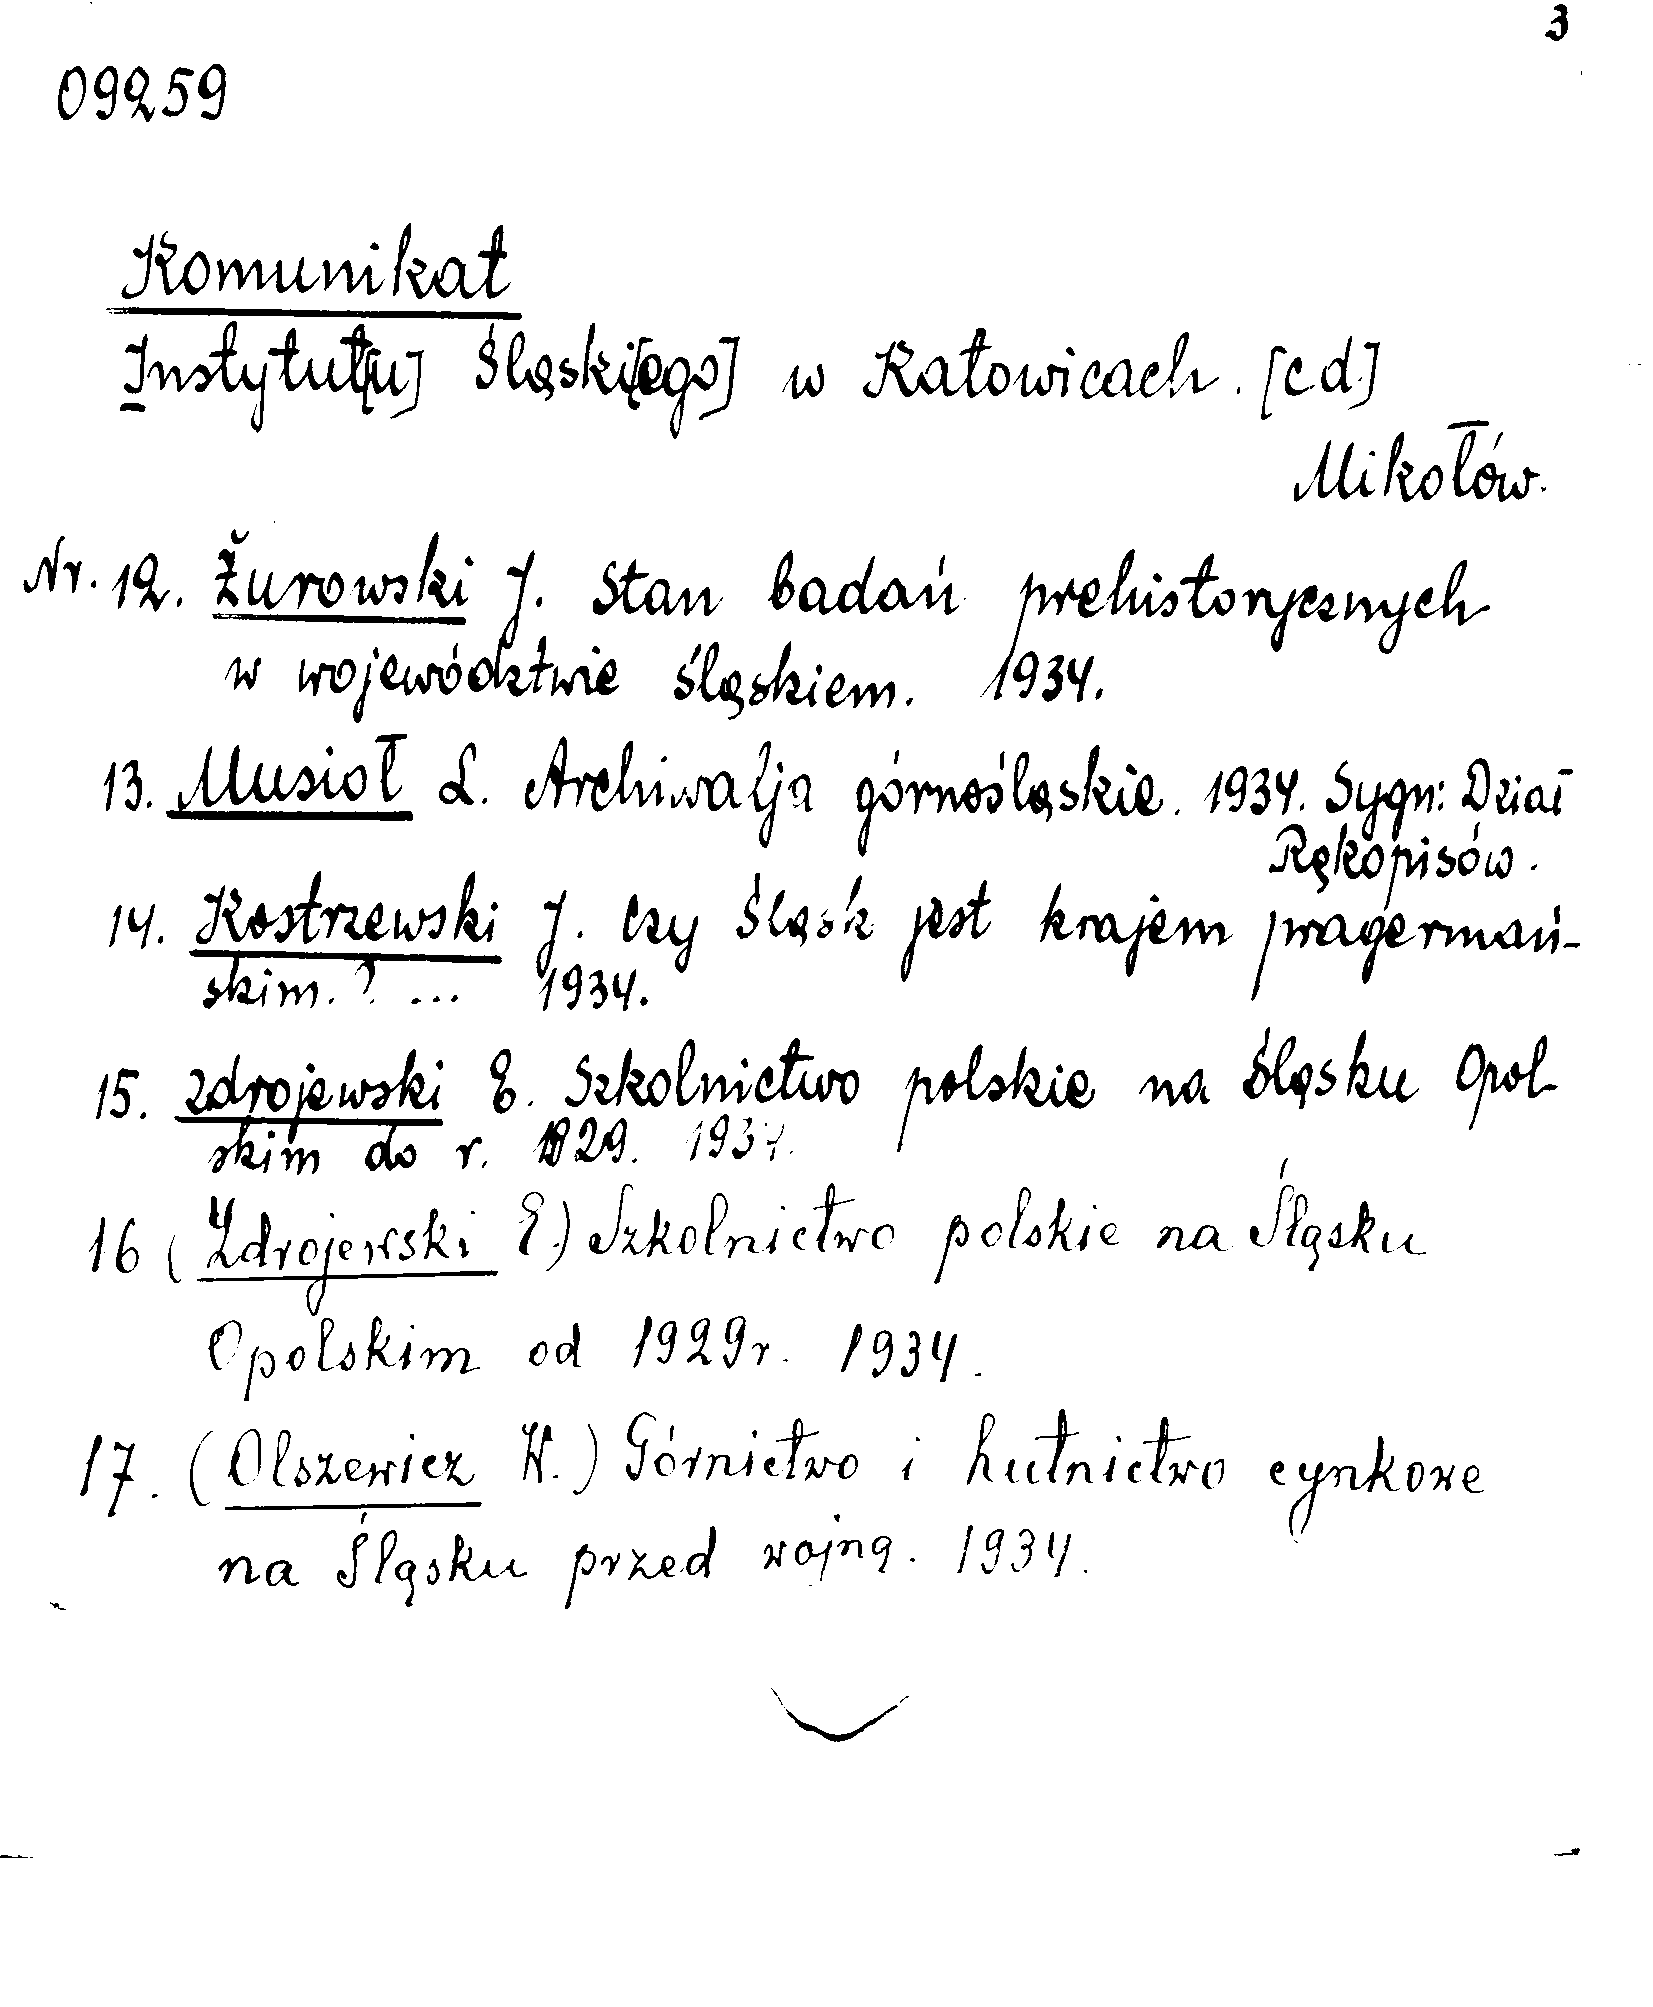 3
09259
Komunikat
Instytut[u] Śląski[ego] w Katowicach. [cd]
Mikołów.
Nr. 12. Żurowski J. Stan badań prehistorycznych
w województwie śląskiem. 1934.
13. Musioł L. Archiwalja górnośląskie. 1934. Sygn: Dział
Rękopisów.
14. Kostrzewski J. Czy Śląsk jest krajem pragermań-
skim.? ... 1934.
15. Zdrojewski E. Szkolnictwo polskie na Śląsku Opol-
skim do r. 1929. 1934.
16 (Zdrojewski E.) Szkolnictwo polskie na Śląsku
Opolskim od 1929r. 1934.
17. (Olszewicz W.) Górnictwo i hutnictwo cynkowe
na Śląsku przed wojną. 1934.